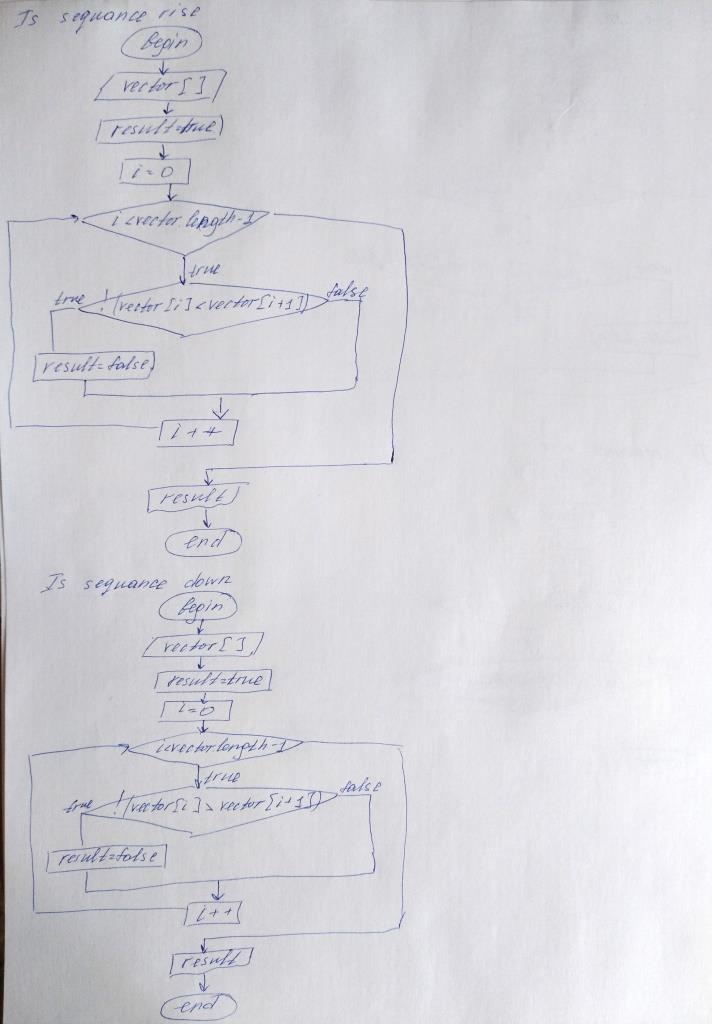 Is sequance rise
Begin
vector[]
result=true
i=0
i<vector.length-1
true
true !(vector[i]<vector[i+1]) false
result=false
i++
result
end
Is sequance down
Begin
vector[]
result=true
i=0
i<vector.length-1
true
true !(vector[i]>vector[i+1]) false
result=false
i++
result
end